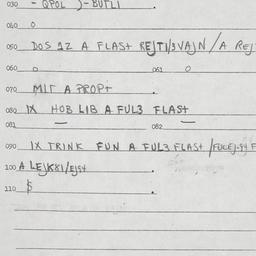 030 - QPOL )-BUTLI
040 O
050 DOS 1Z A FLAST REJTI/3VAJN / A REJ
060 O 061 O
070 MIT A PROPT .
080 IX HOB LIB A FUL3 FLAST
081 — 082 —
090 IX TRINK FUN A FUL3 FLAST /
100 A LEJKKI/EJST .
110 $ .